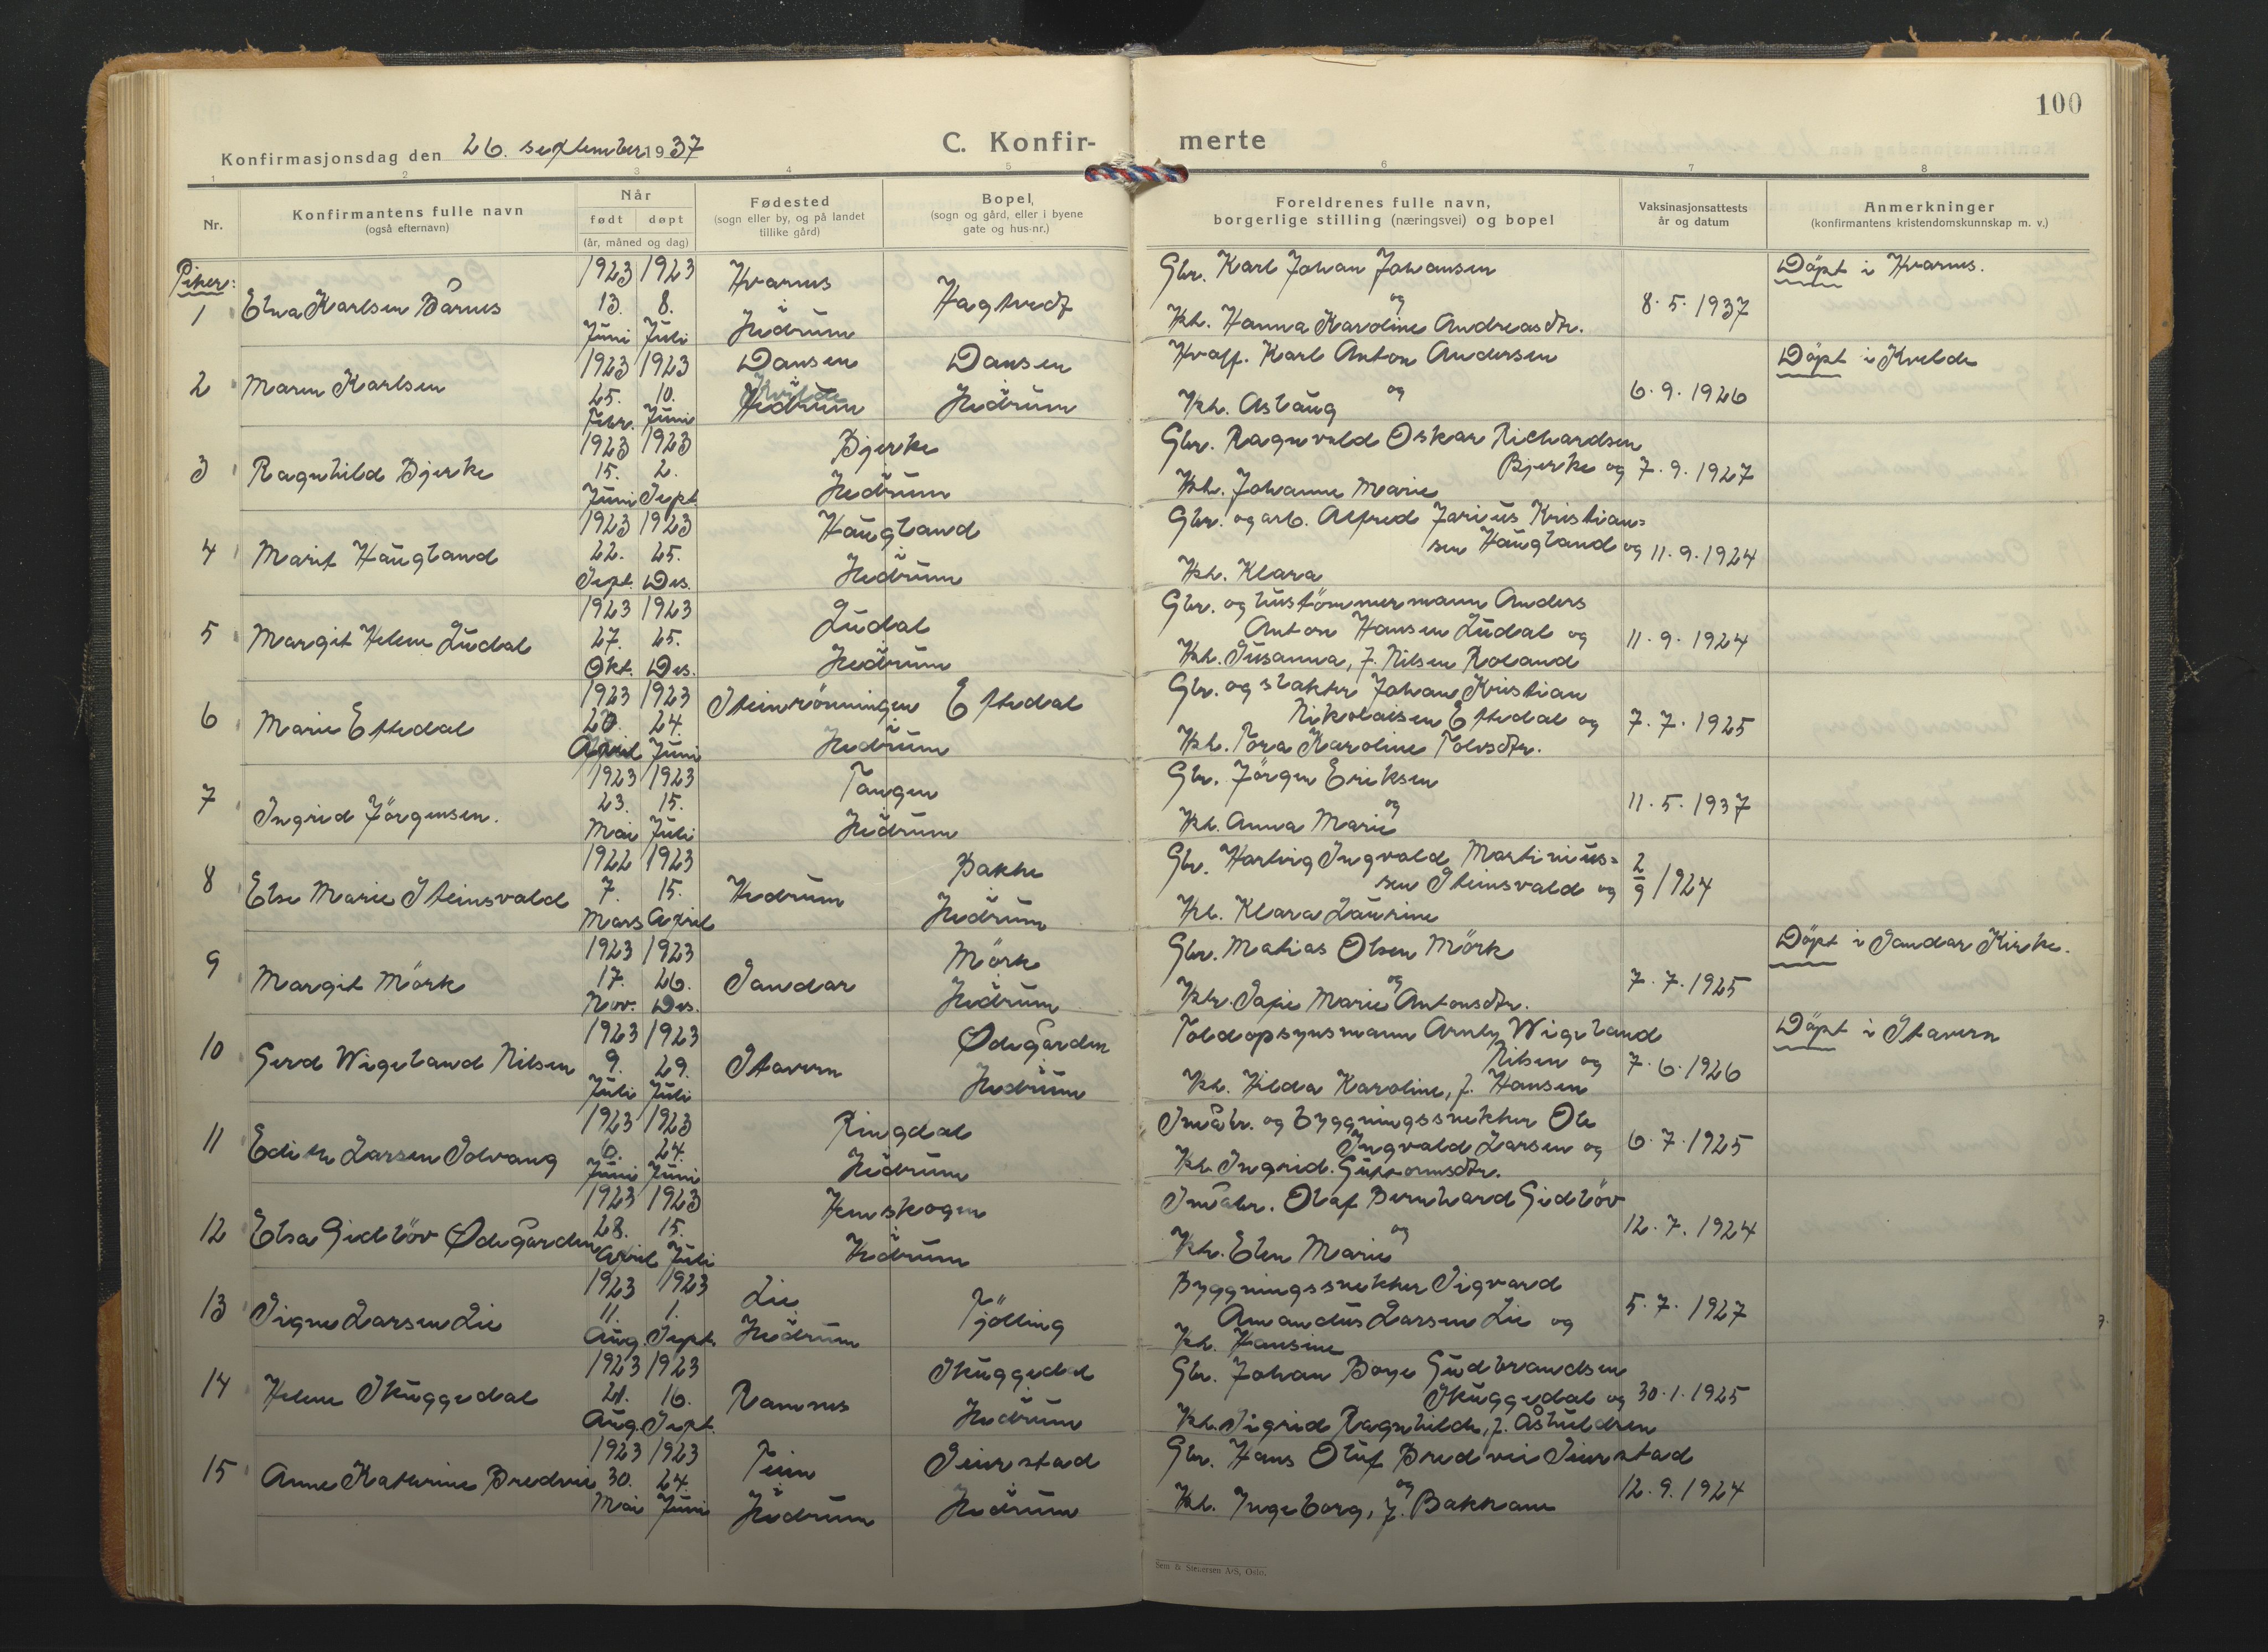 100
Konfirmasjonsdag den 26. september 1937
C. Konfir- merte
1 2 3 4 5 6 7 8
Nr.
Konfirmantens fulle navn
(også efternavn)
Når
født døpt
(år, måned og dag)
Fødested
(sogn eller by, og på landet
tillike gård)
Bopel,
(sogn og gård, eller i byene
gate og hus-nr.)
Foreldrenes fulle navn,
borgerlige stilling (næringsvei) og bopel
Vaksinasjonsattests
år og datum
Anmerkninger
(konfirmantens kristendomskunnskap m. v.)
Piker:
1923 1923 Hvarnes Gbr. Karl Johan Johansen Döpt i Hvarnes.
1 Elna Karlsen Bårnes 13. 8. i Hagtvedt og 8.5.1937
Juni Juli Hedrum Kh. Hanna Karoline Andreasdtr.
1923 1923 Dansen Dansen Hvalf. Karl Anton Andersen Döpt i Kvelde
2 Maren Karlsen 25. 10. Kvelde i og 6.9.1926
Febr. Juni Hedrum Hedrum Kh. Aslaug
1923 1923 Bjerke Gbr. Ragnvald Oskar Richardsen
3 Ragnhild Bjerke 15. 2. i Bjerke og 7.9.1927
Juni Sept. Hedrum Kh. Johanne Marie
1923 1923 Haugland Gbr. og arb. Alfred Jarius Kristian=
4 Marit Haugland 22. 25. i sen Haugland og 11.9.1924
Sept. Des. Hedrum Kh. Klara
1923 1923 Ludal Gbr. og hustömmermann Anders
5 Margit Helene Ludal 27. 25. i Anton Hansen Ludal og 11.9.1924
Okt. Des. Hedrum Kh. Susanna, f. Nilsen Roland
1923 1923 Steinrönningen Eftedal Gbr. og slakter Johan Kristian
6 Marie Eftedal 20. 24. i Nikolaisen Eftedal og 7.7.1925
April Juni Hedrum Kh. Tora Karoline Tolvsdtr.
1923 1923 Tangen Gbr. Jörgen Eriksen
7 Ingrid Jörgensen. 23. 15. i og 11.5.1937
Mai Juli Hedrum Kh. Anna Marie
1922 1923 Bakke Gbr. Hartvig Ingvald Martinius=
8 Else Marie Steinsvald 7. 15. Hedrum i sen Steinsvald og 2/9 1924
Mars April Hedrum Kh. Klara Laurine
1923 1923 Mörk Gbr. Matias Olsen Mörk Döpt i Sandar Kirke.
9 Margit Mörk 17. 26. Sandar i og 7.7.1925
Nov. Des. Hedrum Kh. Sofie Marie Antonsdtr.
1923 1923 Ødegården Toldopsynsmann Arnly Wigeland Döpt i Stavern
10 Gerd Wigeland Nilsen 9. 29. Stavern i Nilsen og 7.6.1926
Juli Juli Hedrum Kh. Hilda Karoline, f. Hansen
1923 1923 Ringdal Småbr. og byggningssnekker Ole
11 Edith Larsen Solvang 6. 24. i Ingvald Larsen og 6.7.1925
Juni Juni Hedrum Kh. Ingrid Guttormsdtr.
1923 1923 Hemskogen Småbr. Olaf Bernhard Gidlöv
12 Elsa Gidlöv Ødegården 28. 15. i og 12.7.1924
April Juli Hedrum Kh. Elen Marie
1923 1923 Lie Byggningssnekker Sigvard
13 Signe Larsen Lie 11. 1. i Tjölling Amandus Larsen Lie og 5.7.1927
Aug. Sept. Hedrum Kh. Hansine
1923 1923 Skuggedal Gbr. Johan Boye Gudbrandsen
14 Helene Skuggedal 21. 16. Ramnes i Skuggedal og 30.1.1925
Aug. Sept. Hedrum Kh. Sigrid Ragnhilde, f. Åshuldsen
1923 1923 Teien Seierstad Gbr. Hans Oluf Bredvei Seierstad
15 Anne Katherine Bredvei 30. 24. i i og 12.9.1924
Mai Juni Hedrum Hedrum Kh. Ingeborg, f. Bakkane
Sem & Stenersen A/S, Oslo.